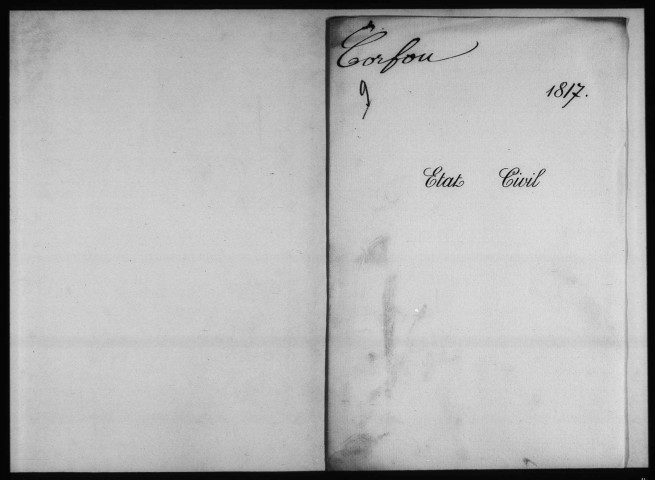 Torfou
9
1817.
Etat Civil